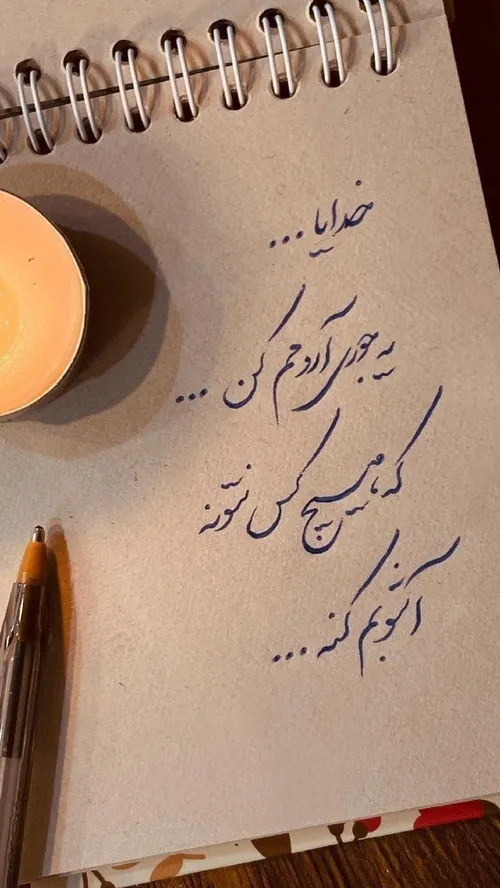 خدایا ...
یه جوری آرومم کن ...
که هیچ کس نتونه
آشوبم کنه ...